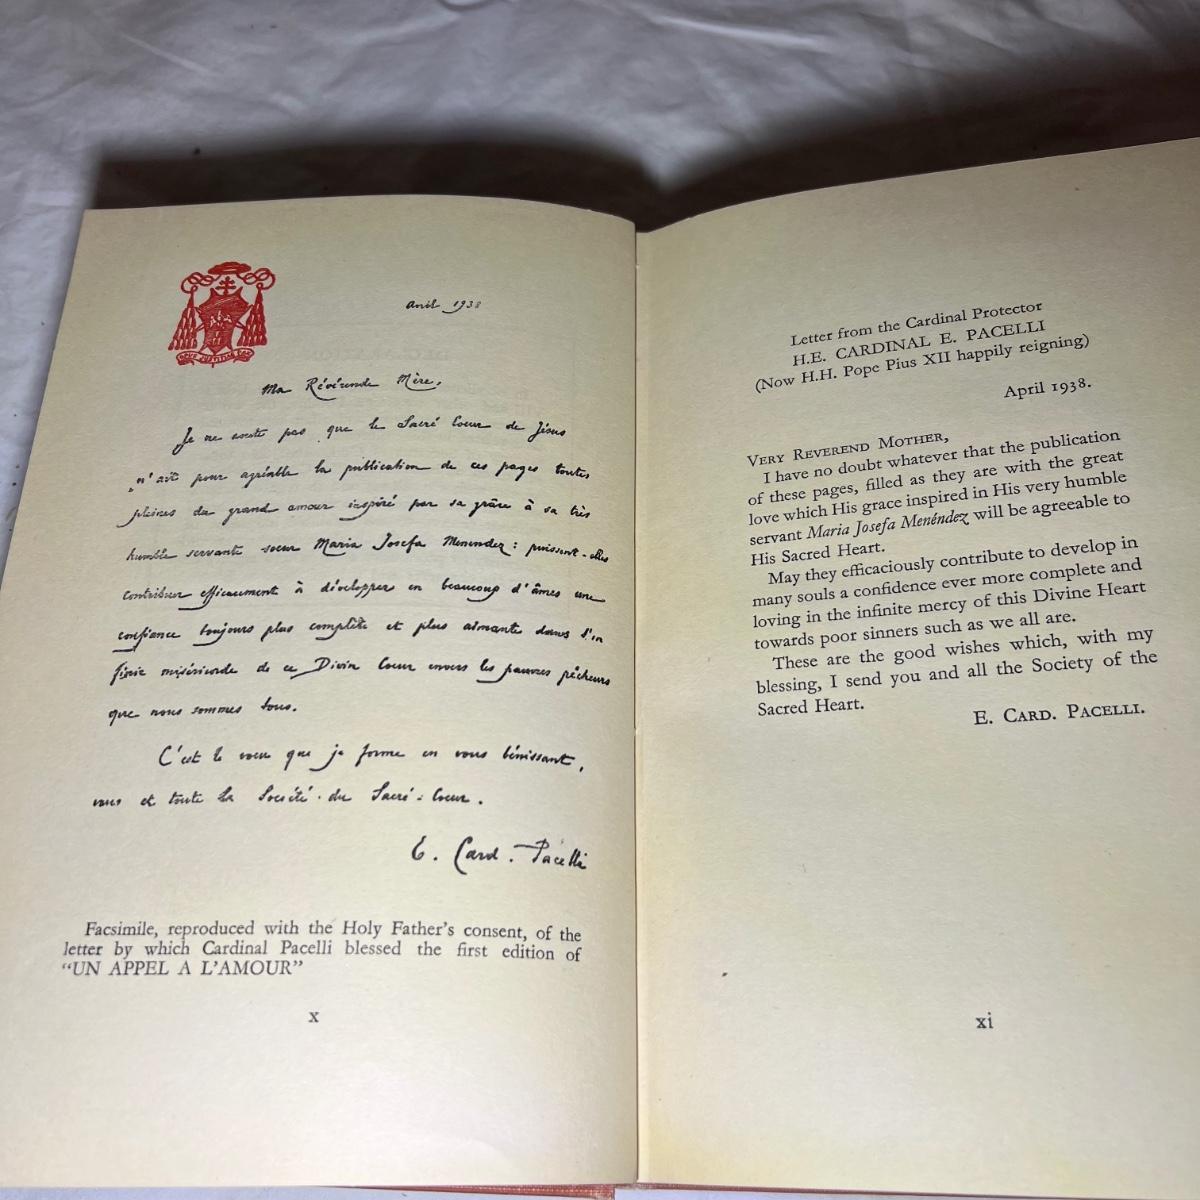 avril 1938
Ma Révérende Mère,
Je ne doute pas que le Sacré Coeur de Jésus
n'ait pour agréable la publication de ces pages toutes
pleines du grand amour inspiré par sa grâce à sa très
humble servante soeur Maria Josefa Menendez : puissent-elles
contribuer efficacement à développer en beaucoup d'âmes une
confiance toujours plus complète et plus aimante dans l'in
finie miséricorde de ce Divin Coeur envers les pauvres pécheurs
que nous sommes tous.
C'est le voeu que je forme en vous bénissant,
vous et toute la Société du Sacré-Coeur.
E. Card. Pacelli
Facsimile, reproduced with the Holy Father's consent, of the
letter by which Cardinal Pacelli blessed the first edition of
"UN APPEL A L'AMOUR"
x
Letter from the Cardinal Protector
H.E. CARDINAL E. PACELLI
(Now H.H. Pope Pius XII happily reigning)
April 1938.
VERY REVEREND MOTHER,
I have no doubt whatever that the publication
of these pages, filled as they are with the great
love which His grace inspired in His very humble
servant Maria Josefa Menéndez will be agreeable to
His Sacred Heart.
May they efficaciously contribute to develop in
many souls a confidence ever more complete and
loving in the infinite mercy of this Divine Heart
towards poor sinners such as we all are.
These are the good wishes which, with my
blessing, I send you and all the Society of the
Sacred Heart.
E. CARD. PACELLI.
xi